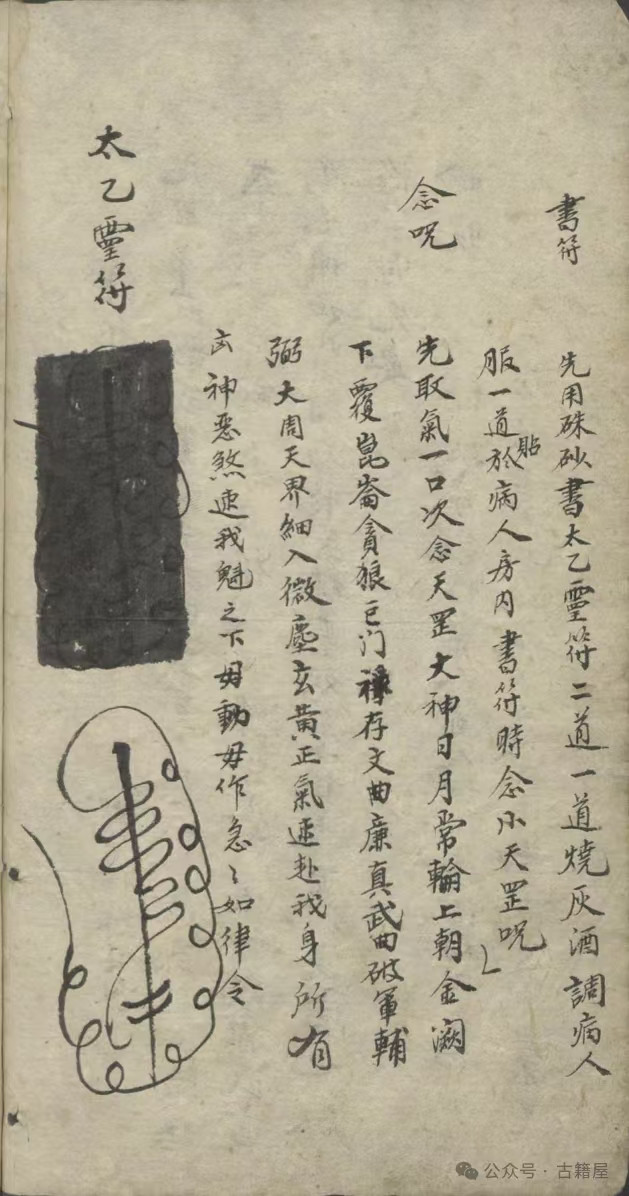 書符
先用硃砂書太乙靈符二道一道燒灰酒調病人
服一道貼於病人房内書符時念小天罡呪
念呪
先取氣一口次念天罡大神日月常輪上朝金闕
下覆崑崙貪狼巨门祿存文曲廉真武曲破軍輔
弼大周天界細入微塵玄黃正氣速赴我身所有
凶神惡煞速我魁之下毋動毋作急〻如律令
太乙靈符
公众号·古籍屋